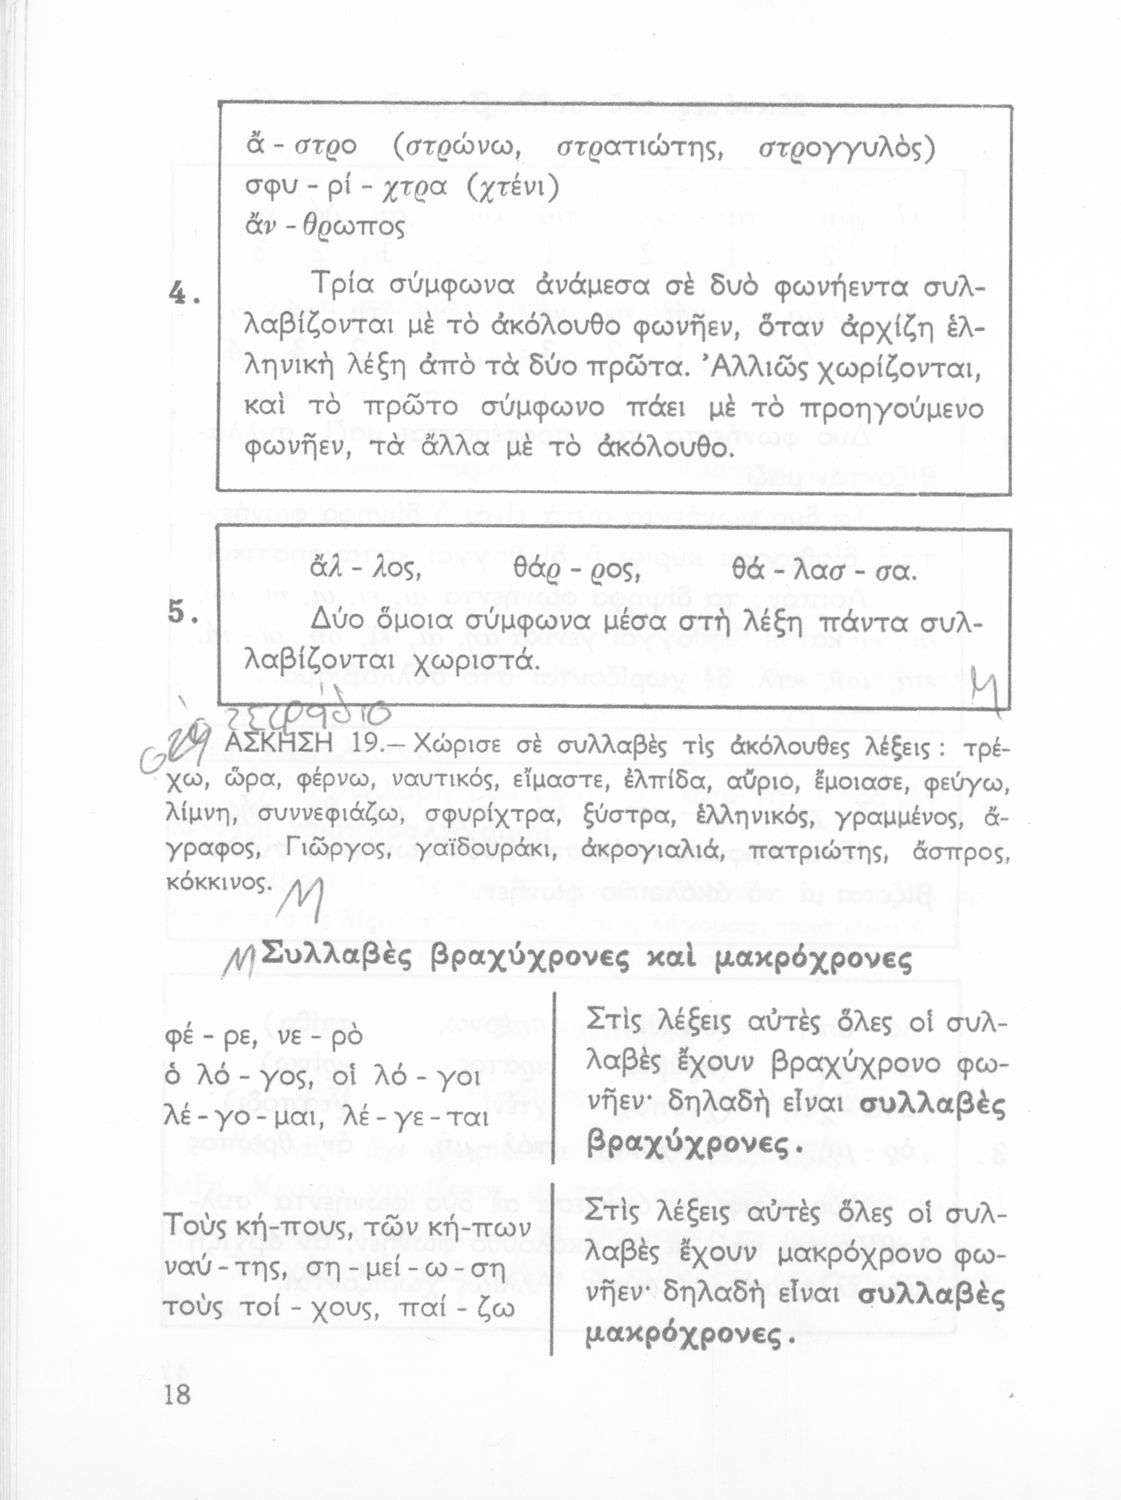 ἄ - στρο (στρώνω, στρατιώτης, στρογγυλὸς)
σφυ - ρί - χτρα (χτένι)
ἄν - θρωπος
4. Τρία σύμφωνα ἀνάμεσα σὲ δυὸ φωνήεντα συλ-
λαβίζονται μὲ τὸ ἀκόλουθο φωνῆεν, ὅταν ἀρχίζη ἑλ-
ληνικὴ λέξη ἀπὸ τὰ δύο πρῶτα. Ἀλλιῶς χωρίζονται,
καὶ τὸ πρῶτο σύμφωνο πάει μὲ τὸ προηγούμενο
φωνῆεν, τὰ ἄλλα μὲ τὸ ἀκόλουθο.
ἄλ - λος, θάρ - ρος, θά - λασ - σα.
5. Δύο ὅμοια σύμφωνα μέσα στὴ λέξη πάντα συλ-
λαβίζονται χωριστά.
τετράδιο
ΑΣΚΗΣΗ 19.— Χώρισε σὲ συλλαβὲς τὶς ἀκόλουθες λέξεις : τρέ-
χω, ὥρα, φέρνω, ναυτικός, εἴμαστε, ἐλπίδα, αὔριο, ἔμοιασε, φεύγω,
λίμνη, συννεφιάζω, σφυρίχτρα, ξύστρα, ἑλληνικός, γραμμένος, ἄ-
γραφος, Γιῶργος, γαϊδουράκι, ἀκρογιαλιά, πατριώτης, ἄσπρος,
κόκκινος.
Συλλαβὲς βραχύχρονες καὶ μακρόχρονες
φέ - ρε, νε - ρὸ
ὁ λό - γος, οἱ λό - γοι
λέ - γο - μαι, λέ - γε - ται
Στὶς λέξεις αὐτὲς ὅλες οἱ συλ-
λαβὲς ἔχουν βραχύχρονο φω-
νῆεν· δηλαδὴ εἶναι συλλαβὲς
βραχύχρονες.
Τοὺς κή-πους, τῶν κή-πων
ναύ - της, ση - μεί - ω - ση
τοὺς τοί - χους, παί - ζω
Στὶς λέξεις αὐτὲς ὅλες οἱ συλ-
λαβὲς ἔχουν μακρόχρονο φω-
νῆεν· δηλαδὴ εἶναι συλλαβὲς
μακρόχρονες.
18